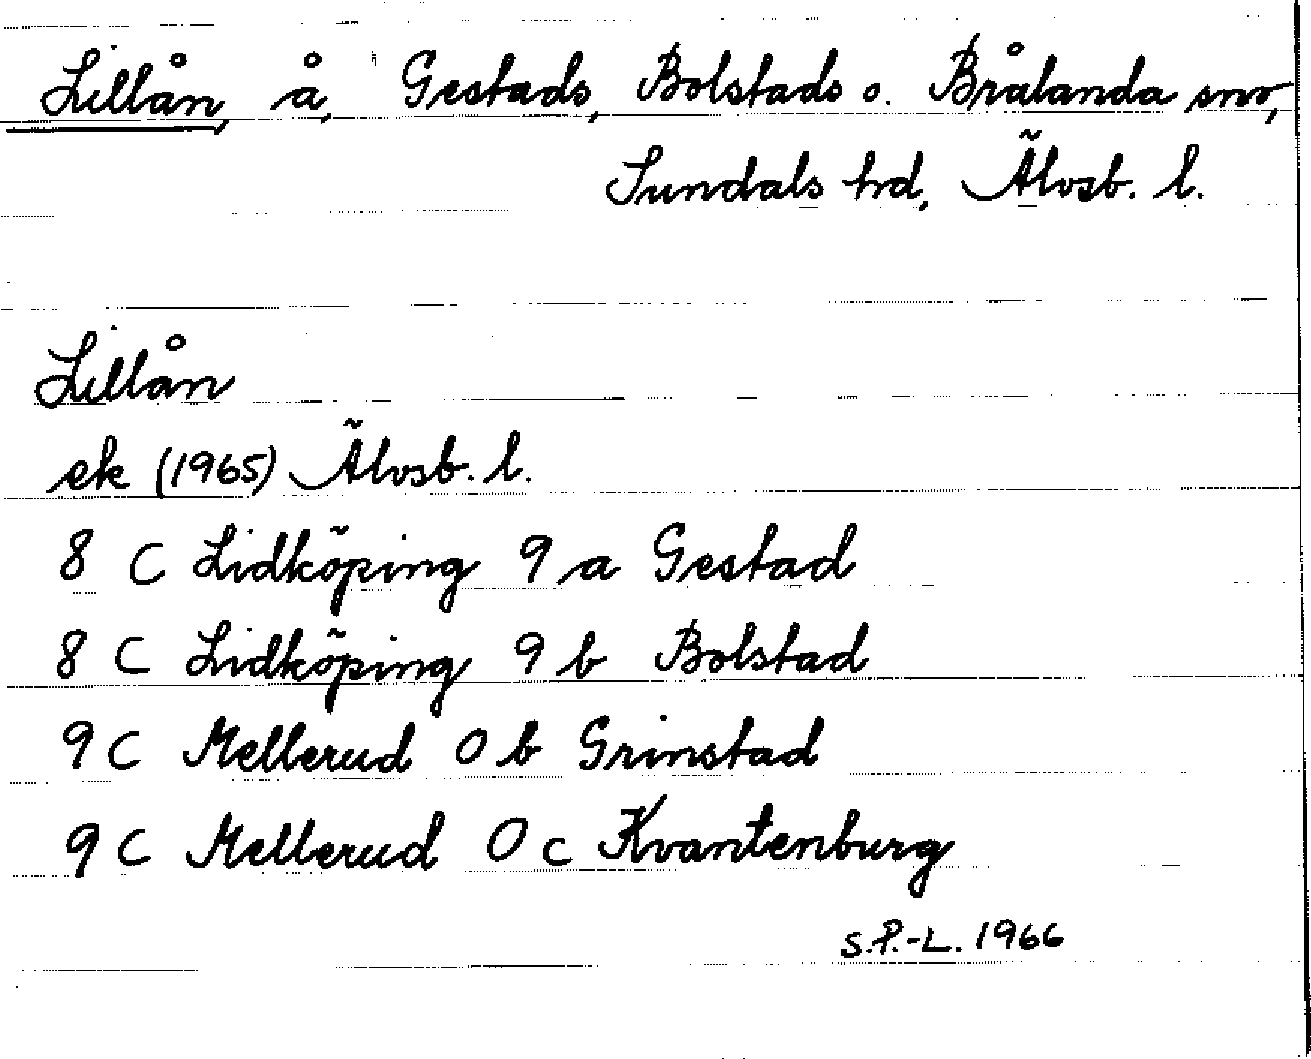 Lillån, å, Gestads, Bolstads o. Brålanda snr,
Sundals hd, Älvsb. l.
Lillån
ek (1965) Älvsb. l.
8 C Lidköping 9 a Gestad
8 C Lidköping 9 b Bolstad
9 C Mellerud 0 b Grinstad
9 C Mellerud 0 c Kvantenburg
S.P.-L. 1966